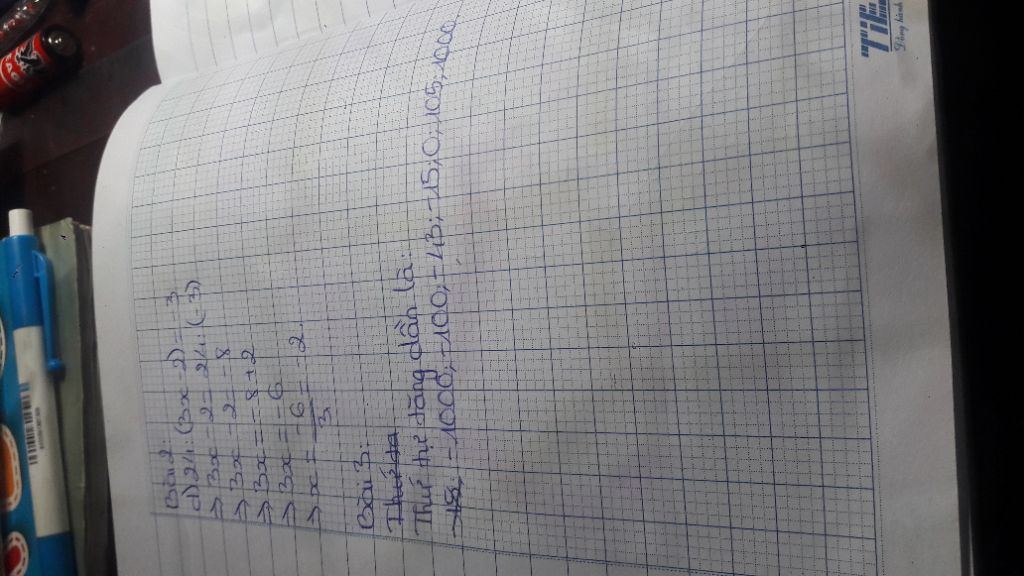 Bài 2:
c) 24:(3x-2)=-3
=> 3x-2=24:(-3)
=> 3x-2=-8
=> 3x=-8+2
=> 3x=-6
=> x=-6/3=-2
Bài 3:
Thứ tự tăng dần là:
-1000,-100,-43,-15,0,105,1000